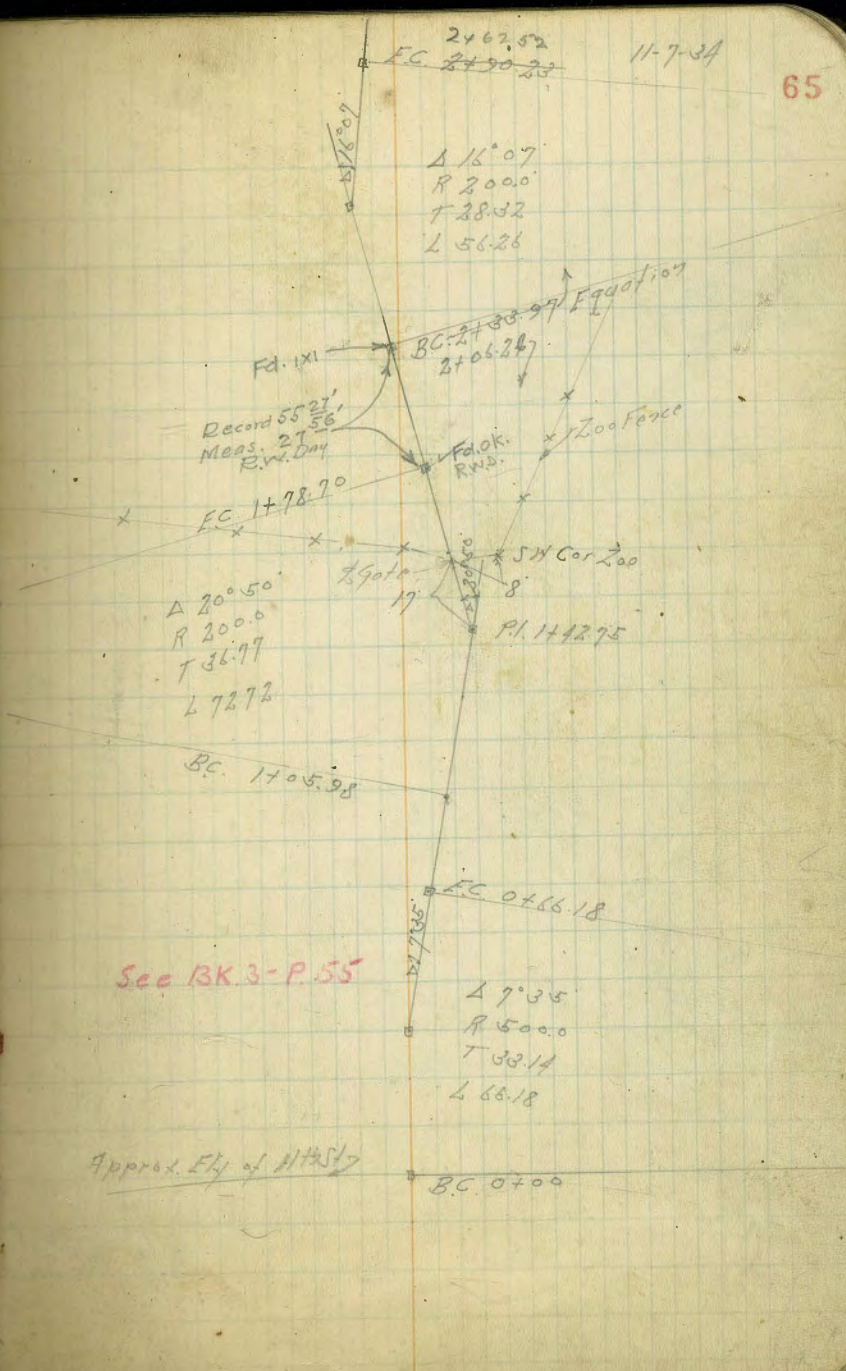 2+62.52
E.C. 2+90.23
11-7-34
65
Δ 16°07'
Δ 16°07'
R 200.0
T 28.32
L 56.26
Equation
BC. 2+33.97
2+06.26
Fd. 1x1
Record 55 27'
Meas. 27 56'
R.W. Day
Fd. OK.
R.W.D.
Zoo Fence
E.C. 1+78.70
SW Cor Zoo
Gate
8
17
Δ 20°50'
P.I. 1+42.75
Δ 20°50'
R 200.0
T 36.77
L 72.72
B.C. 1+05.98
E.C. 0+66.18
Δ 7°35'
See BK. 3 - P. 55
Δ 7°35'
R 500.0
T 33.14
L 66.18
Approx. Ely of
B.C. 0+00